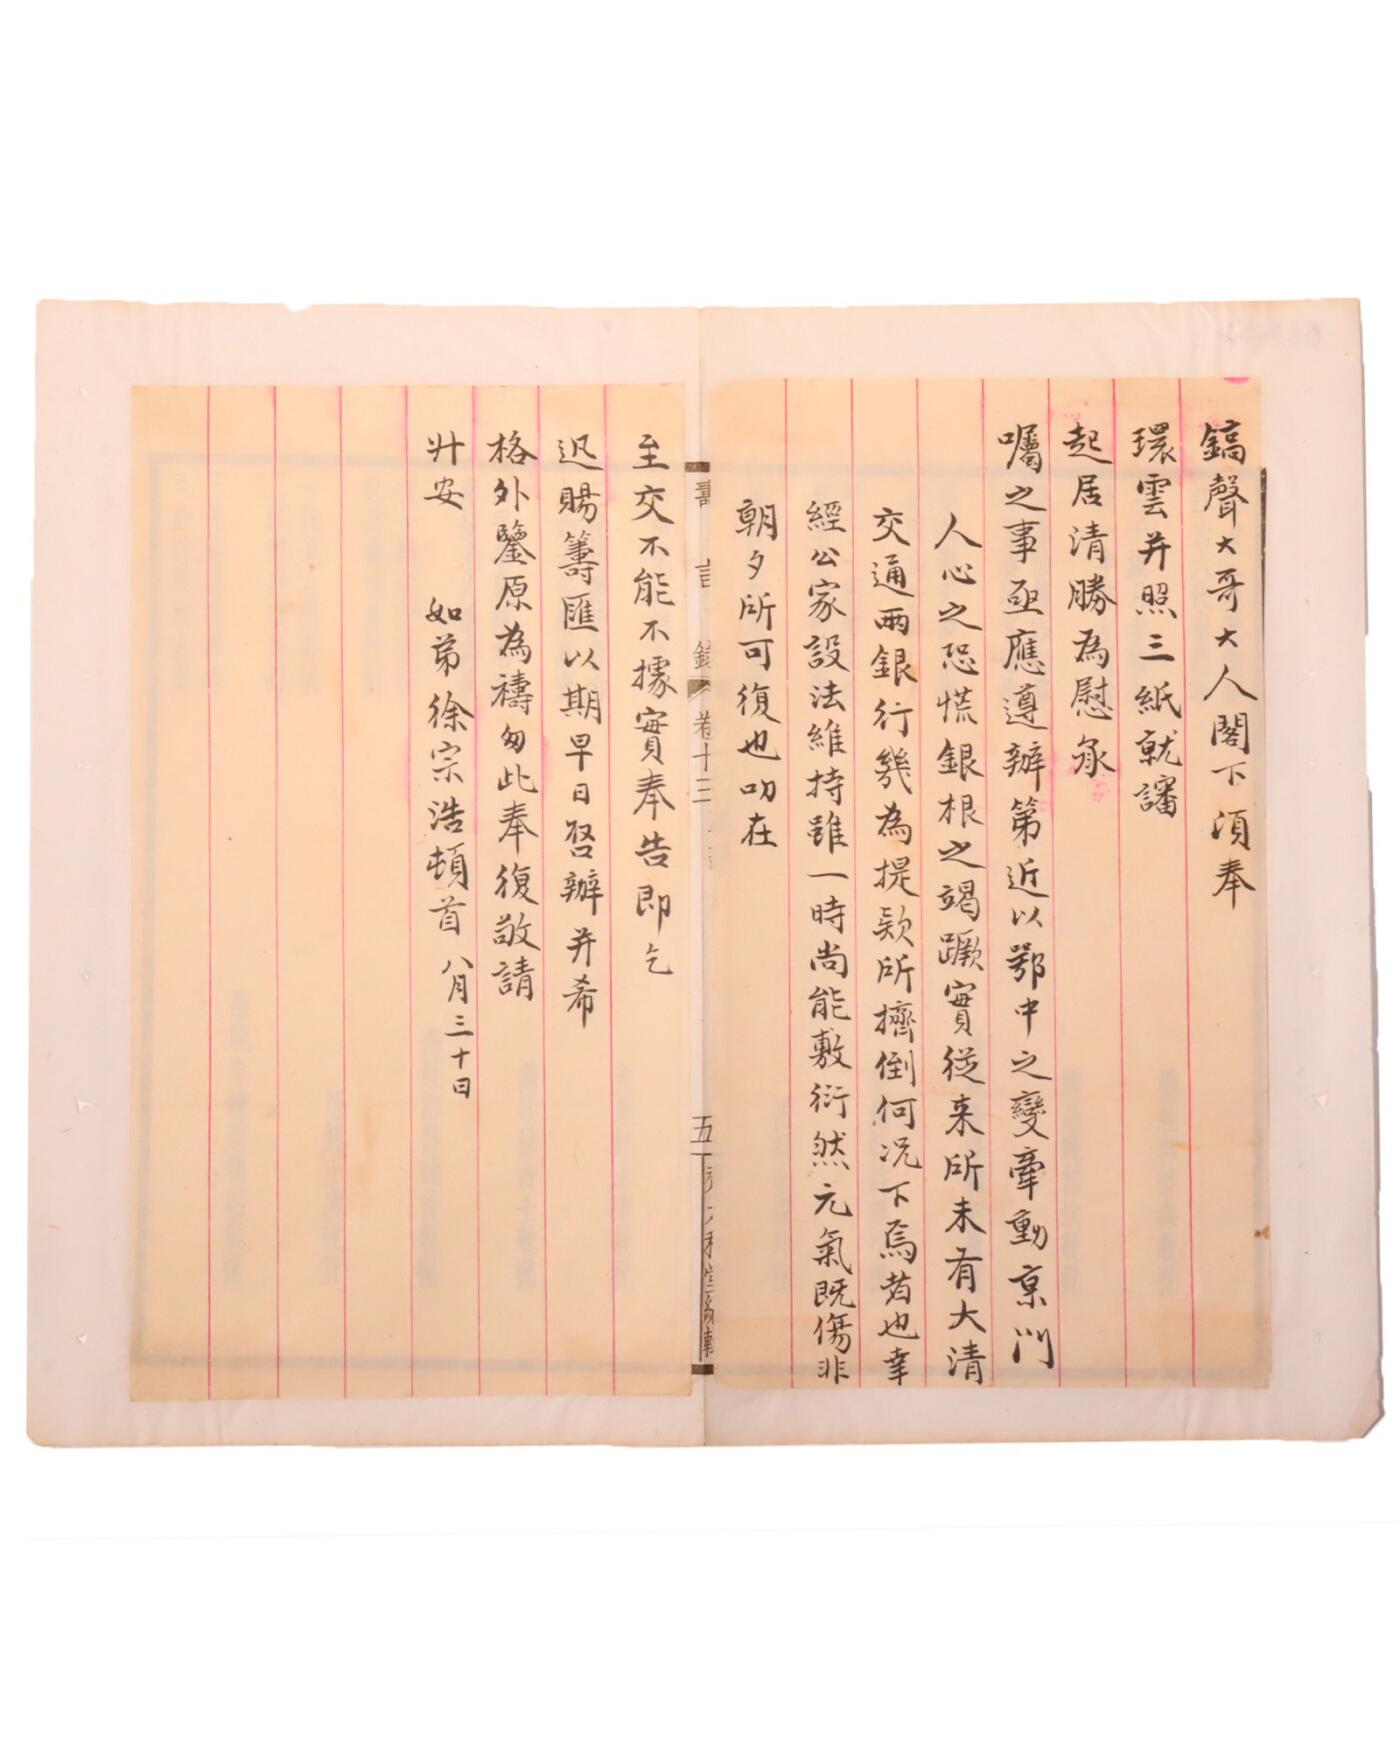 鎬聲大哥大人閣下湏奉
環雲并照三紙就讅
起居清勝為慰承
囑之事亟應遵辦第近以鄂中之變牽動京門
人心之恐慌銀根之竭蹶實從来所未有大清
交通兩銀行幾為提欵所擠倒何况下焉者也幸
經公家設法維持雖一時尚能敷衍然元氣既傷非
朝夕所可復也叨在
至交不能不據實奉告即乞
迅賜籌匯以期早日啓辦并希
格外鑒原為禱匆此奉復敬請
升安 如弟徐宗浩頓首 八月三十日
卷十三
五